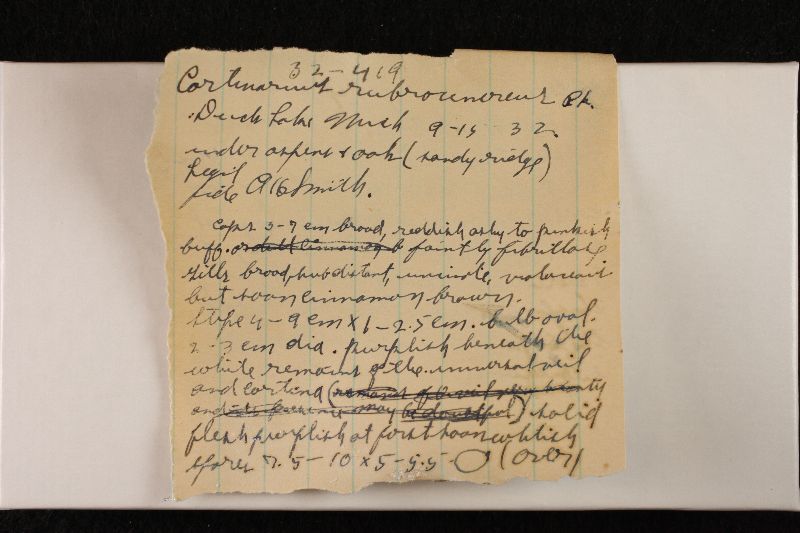 32-419
Cortinarius rubrocinereus Pk.
Duck Lake Mich 9-15 32.
under aspens & oak (sandy ridge)
legit
fide AHSmith.
caps 3-7 cm broad, reddish ashy to pinkish
buff. or dull cinnamon b faintly fibrillose
gills broad, subdistant, uncinate, violaceous
but soon cinnamon brown.
stipe 4-9 cm x 1-2.5 cm. bulb oval.
2-3 cm dia. purplish beneath the
white remains of the universal veil
and cortina (remains of a veil very scanty
and its presence may be doubtful) solid
flesh purplish at first soon whitish
spores 7.5-10 x 5-5.5 (over)